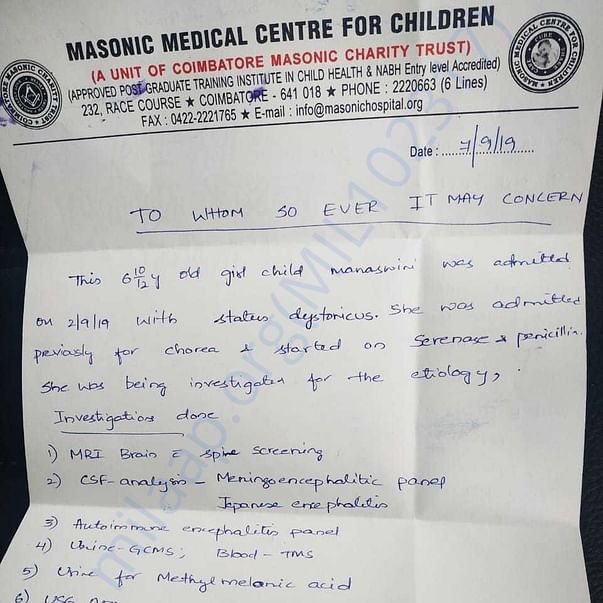 MASONIC MEDICAL CENTRE FOR CHILDREN
(A UNIT OF COIMBATORE MASONIC CHARITY TRUST)
(APPROVED POST GRADUATE TRAINING INSTITUTE IN CHILD HEALTH & NABH Entry level Accredited)
232, RACE COURSE ★ COIMBATORE - 641 018 ★ PHONE : 2220663 (6 Lines)
FAX : 0422-2221765 ★ E-mail : info@masonichospital.org
COIMBATORE MASONIC CHARITY TRUST
MASONIC MEDICAL CENTRE FOR CHILDREN
Date : 7/9/19
TO WHOM SO EVER IT MAY CONCERN
This 6 10/12 y old girl child manaswini was admitted
on 2/9/19 with status dystonicus. She was admitted
peviasly for chorea & started on Serenase & penicillin.
She was being investigated for the etiology,
Investigations done
1) MRI Brain c̄ spine screening
2) CSF-analysis - Meningoencephalitic panel
Japanese encephalitis
3) Autoimmune encephalitis panel
4) Urine-GCMS; Blood-TMS
5) Urine for Methylmelonic acid
6) USG
milaap.org(MIL1023